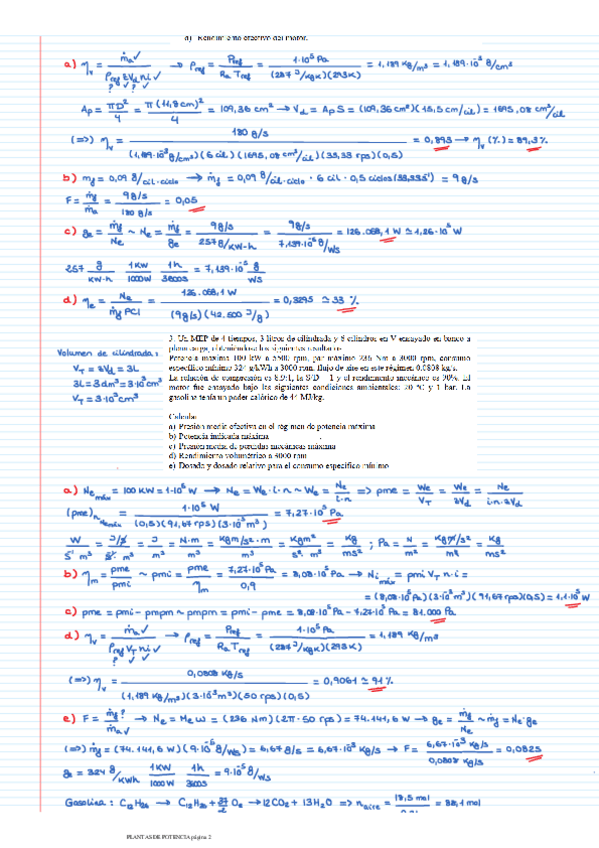 d) Rendimiento efectivo del motor.
a) ηv = ṁa✓ / (ρref z Vd n i✓) → ρref = Pref / (Ra Tref) = 1·10⁵ Pa / ((287 J/kgK)(293K)) = 1,189 kg/m³ = 1,189·10⁻³ g/cm³
? ✓ ✓
Ap = πD²/4 = π(11,8 cm)²/4 = 109,36 cm² → Vd = Ap S = (109,36 cm²)(15,5 cm/cil) = 1695,08 cm³/cil
(=>) ηv = 180 g/s / ((1,189·10⁻³ g/cm³)(6 cil)(1695,08 cm³/cil)(33,33 rps)(0,5)) = 0,893 → ηv (%) = 89,3%
b) mf = 0,09 g/cil·ciclo → ṁf = 0,09 g/cil·ciclo · 6 cil · 0,5 ciclos (33,33 s⁻¹) = 9 g/s
F = ṁf/ṁa = 9 g/s / 180 g/s = 0,05
c) ge = ṁf/Ne ~ Ne = ṁf/ge = 9 g/s / 257 g/kW·h = 9 g/s / 7,139·10⁻⁵ g/Ws = 126.068,1 W ≃ 1,26·10⁵ W
257 g/kW·h 1KW/1000W 1h/3600s = 7,139·10⁻⁵ g/WS
d) ηe = Ne / (ṁf PCI) = 126.068,1 W / ((9 g/s)(42.500 J/g)) = 0,3295 ≃ 33 %
3. Un MEP de 4 tiempos, 3 litros de cilindrada y 6 cilindros en V ensayado en banco a
Potencia máxima 100 kW a 5500 rpm, par máximo 236 Nm a 3000 rpm, consumo
específico mínimo 324 g/kWh a 3000 rpm. Flujo de aire en este régimen 0.0808 kg/s.
La relación de compresión es 8.9:1, la S/D = 1 y el rendimiento mecánico es 90%. El
motor fue ensayado bajo las siguientes condiciones ambientales: 20 ºC y 1 bar. La
gasolina tenía un poder calórico de 44 MJ/kg.
Volumen de cilindrada:
VT = zVd = 3L
3L = 3dm³ = 3·10³ cm³
VT = 3·10³ cm³
Calcular
a) Presión media efectiva en el régimen de potencia máxima
b) Potencia indicada máxima
c) Presión media de pérdidas mecánicas máxima
d) Rendimiento volumétrico a 3000 rpm
e) Dosado y dosado relativo para el consumo específico mínimo
a) Ne máx = 100 KW = 1·10⁵ W → Ne = We·i·n ~ We = Ne/(i·n) => pme = We/VT = We/zVd = Ne/(i·n·zVd)
(pme)n = 1·10⁵ W / ((0,5)(91,67 rps)(3·10⁻³ m³)) = 7,27·10⁵ Pa
W/(s⁻¹ m³) = (J/s)/(s⁻¹ m³) = J/m³ = N·m/m³ = (Kgm/s²·m)/m³ = Kgm²/(s² m³) = Kg/ms² ; Pa = N/m² = (Kgm/s²)/m² = Kg/ms²
b) ηm = pme/pmi ~ pmi = pme/ηm = 7,27·10⁵ Pa / 0,9 = 8,08·10⁵ Pa → Ni máx = pmi VT n·i =
= (8,08·10⁵ Pa)(3·10⁻³ m³)(91,67 rps)(0,5) = 1,1·10⁵ W
c) pme = pmi - pmpm ~ pmpm = pmi - pme = 8,08·10⁵ Pa - 7,27·10⁵ Pa = 81.000 Pa
d) ηv = ṁa✓ / (ρref VT n i✓) → ρref = Pref / (Ra Tref) = 1·10⁵ Pa / ((287 J/kgK)(293K)) = 1,189 kg/m³
? ✓ ✓
(=>) ηv = 0,0808 kg/s / ((1,189 kg/m³)(3·10⁻³ m³)(50 rps)(0,5)) = 0,9061 ≃ 91 %
e) F = ṁf?/ṁa✓ → Ne = Me ω = (236 Nm)(2π·50 rps) = 74.141,6 W → ge = ṁf/Ne ~ ṁf = Ne·ge
(=>) ṁf = (74.141,6 W)(9·10⁻⁵ g/Ws) = 6,67 g/s = 6,67·10⁻³ Kg/s → F = 6,67·10⁻³ Kg/s / 0,0808 Kg/s = 0,0825
ge = 324 g/KWh 1KW/1000W 1h/3600s = 9·10⁻⁵ g/Ws
Gasolina: C12H26 → C12H26 + 37/2 O2 → 12CO2 + 13H2O => naire = 18,5 mol / 0,21 = 88,1 mol
PLANTAS DE POTENCIA página 2